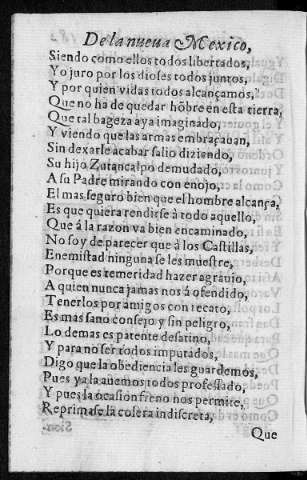 De la nueua Mexico,
Siendo como ellos todos libertados,
Yo juro por los dioses todos juntos,
Y por quien vidas todos alcançamos,
Que no ha de quedar hõbre en esta tierra,
Que tal bageza aya imaginado,
Y viendo que las armas embraçauan,
Sin dexarle acabar salio diziendo,
Su hijo Zutancalpo demudado,
A su Padre mirando con enojo,
El mas seguro bien que el hombre alcança,
Es que quiera rendirse â todo aquello,
Que â la razon va bien encaminado,
No soy de parecer que â los Castillas,
Enemistad ninguna se les muestre,
Porque es temeridad hazer agrauio,
A quien nunca jamas nos â ofendido,
Tenerlos por amigos con recato,
Es mas sano consejo y sin peligro,
Lo demas es patente desatino,
Y para no ser todos imputados,
Digo que la obediencia les guardemos,
Pues ya la auemos todos professado,
Y pues la ocasion freno nos permite,
Reprimase la colera indiscreta,
Que